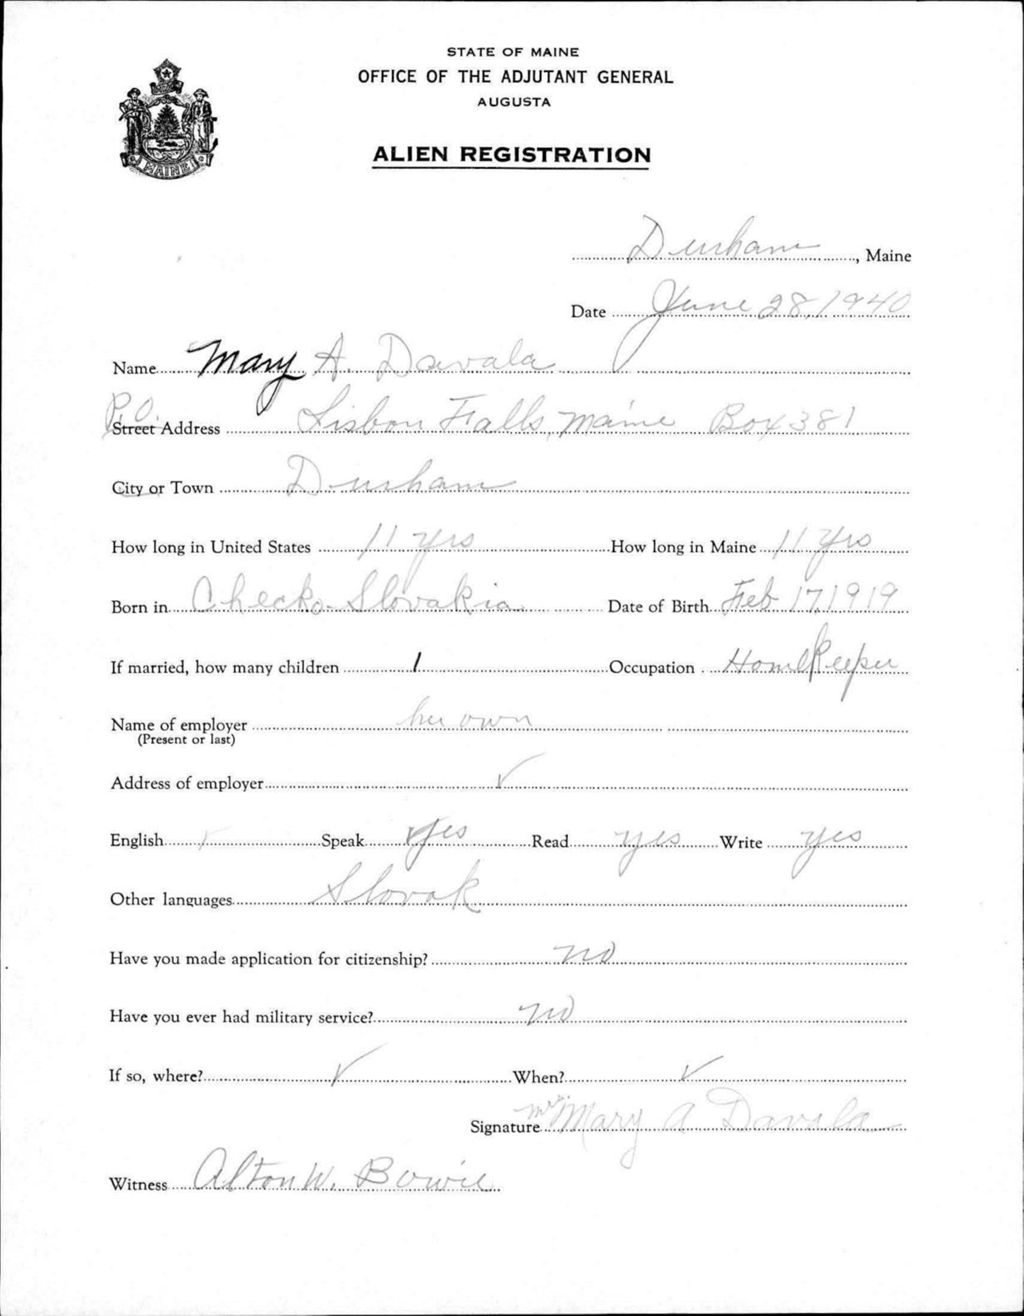 STATE OF MAINE
OFFICE OF THE ADJUTANT GENERAL
AUGUSTA
MAINE
ALIEN REGISTRATION
Durham, Maine
Date June 28, 1940
Name Mary A. Davala
P.O.
Street Address Lisbon Falls, Maine Box 381
City or Town Durham
How long in United States 11 yrs How long in Maine 11 yrs
Born in Checko-Slovakia Date of Birth Feb 17, 1919
If married, how many children 1 Occupation HomeKeeper
Name of employer her own
(Present or last)
Address of employer ✓
English ✓ Speak Yes Read yes Write yes
Other languages Slovak
Have you made application for citizenship? no
Have you ever had military service? no
If so, where? ✓ When? ✓
Signature Mrs. Mary A Davala
Witness Alton W. Bowie